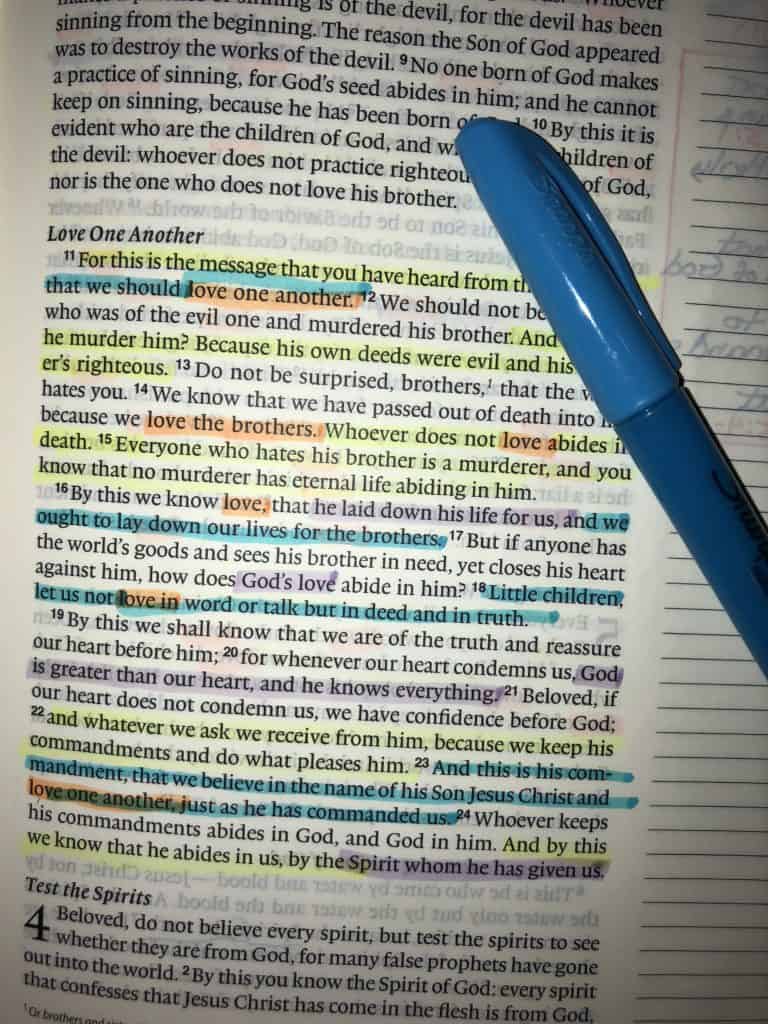 is of the devil, for the devil has been
sinning from the beginning. The reason the Son of God appeared
was to destroy the works of the devil. 9 No one born of God makes
a practice of sinning, for God's seed abides in him; and he cannot
keep on sinning, because he has been born 10 By this it is
evident who are the children of God, and children of
the devil: whoever does not practice of God,
nor is the one who does not love his brother.
Love One Another
11 For this is the message that you have heard from
that we should love one another. 12 We should not be
who was of the evil one and murdered his brother. And
he murder him? Because his own deeds were evil and his
er's righteous. 13 Do not be surprised, brothers,1 that the
hates you. 14 We know that we have passed out of death into
because we love the brothers. Whoever does not love abides
death. 15 Everyone who hates his brother is a murderer, and you
know that no murderer has eternal life abiding in him.
16 By this we know love, that he laid down his life for us, and we
ought to lay down our lives for the brothers. 17 But if anyone has
the world's goods and sees his brother in need, yet closes his heart
against him, how does God's love abide in him? 18 Little children,
let us not love in word or talk but in deed and in truth.
19 By this we shall know that we are of the truth and reassure
our heart before him; 20 for whenever our heart condemns us, God
is greater than our heart, and he knows everything. 21 Beloved, if
our heart does not condemn us, we have confidence before God;
22 and whatever we ask we receive from him, because we keep his
commandments and do what pleases him. 23 And this is his com-
mandment, that we believe in the name of his Son Jesus Christ and
love one another, just as he has commanded us. 24 Whoever keeps
his commandments abides in God, and God in him. And by this
we know that he abides in us, by the Spirit whom he has given us.
Test the Spirits
4 Beloved, do not believe every spirit, but test the spirits to see
whether they are from God, for many false prophets have gone
out into the world. 2 By this you know the Spirit of God: every spirit
that confesses that Jesus Christ has come in the flesh is from God,
1 Or brothers and